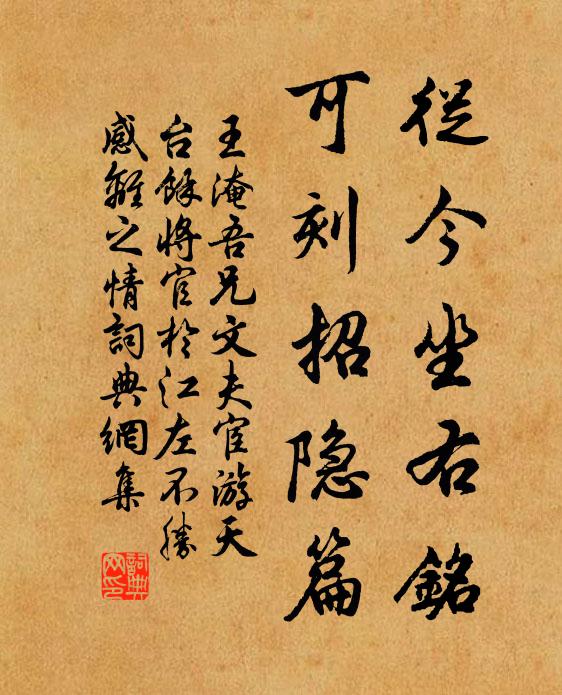 從今坐右銘
可刻招隐篇
王淹吾兄文夫宦游天
台餘將官於江左不勝
感離之情詞典網集
詞典
网印